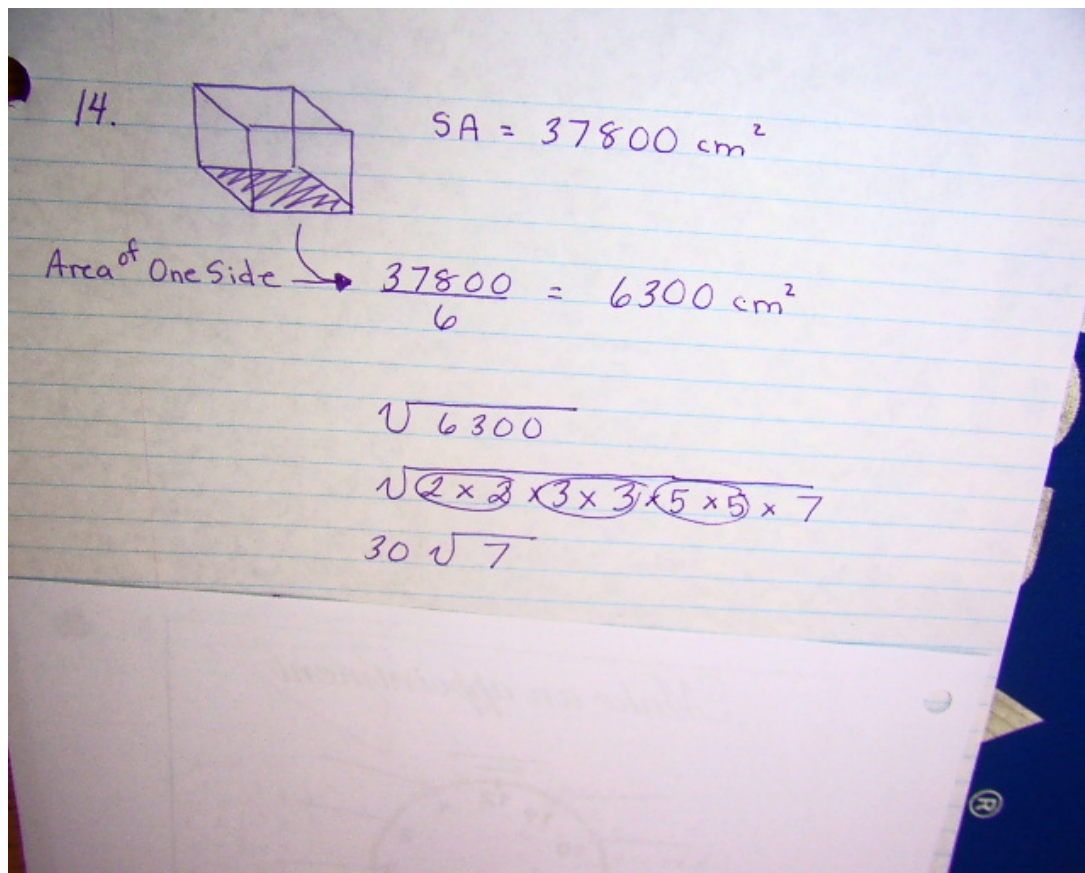 14.
SA = 37800 cm²
Area of One Side → 37800 / 6 = 6300 cm²
√6300
√2 × 2 × 3 × 3 × 5 × 5 × 7
30 √7
®